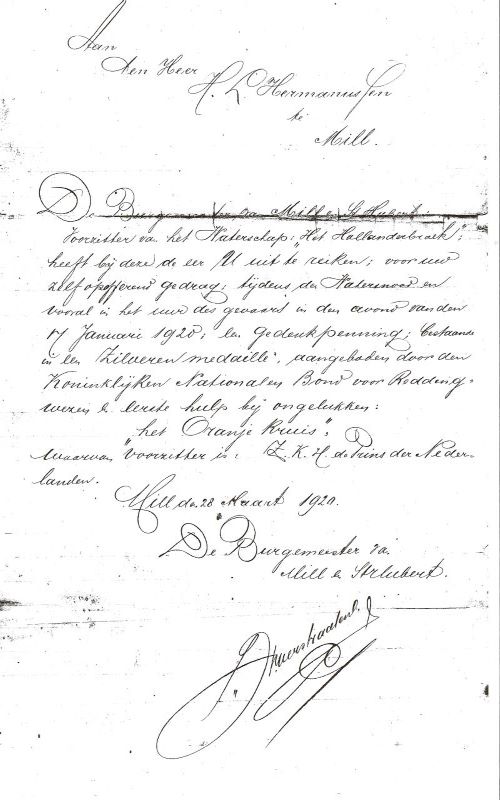 Aan
den Heer
H. L. Hermanussen
te
Mill.
De Burgemeester van Mill en St Hubert.
Voorzitter van het Waterschap: "Het Hollanderbroek";
heeft bij deze de eer U uit te reiken; voor uw
zelfopofferend gedrag; tijdens den Watersnood en
vooral in het uur des gevaars in den avond van den
17 Januari 1920; een Gedenkpenning; bestaande
in een "Zilveren medaille", aangeboden door den
Koninklijken Nationalen Bond voor Redding-
wezen & eerste hulp bij ongelukken:
"het Oranje Kruis".
waarvan Voorzitter is: Z. K. H. de Prins der Neder-
landen.
Mill den 28 Maart 1920.
De Burgemeester van
Mill en St Hubert.